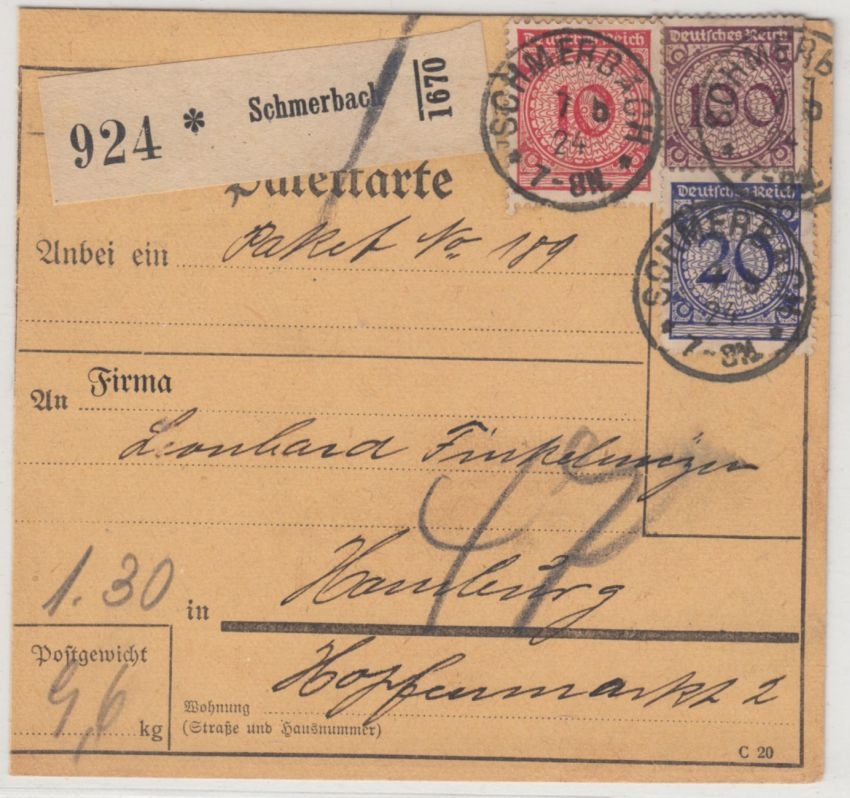 924 * Schmerbach 1670
Deutsches Reich
10
Deutsches Reich
100
Deutsches Reich
20
SCHMERBACH
1 b
24
* 7-8N. *
SCHMERBACH
24
7-8N.
SCHMERBACH
24
* 7-8N. *
Paketkarte
Anbei ein Paket No 189
An Firma
Leonhard
Hamburg
1.30
in
47
Postgewicht
9,6 kg
Hopfenmarkt 2
Wohnung
(Straße und Hausnummer)
C 20